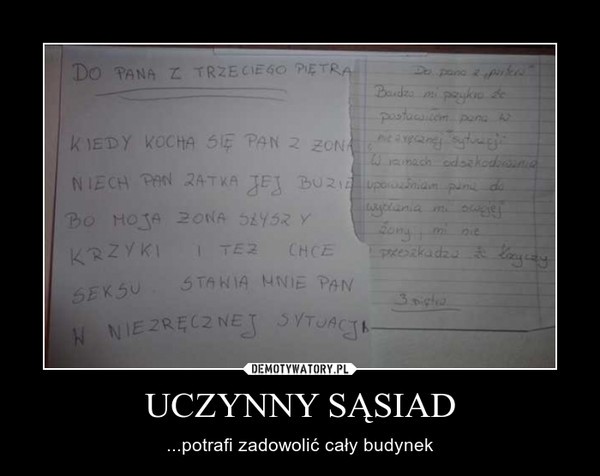 DO PANA Z TRZECIEGO PIĘTRA
KIEDY KOCHA SIĘ PAN Z ŻONĄ
NIECH PAN ZATKA JEJ BUZIĘ
BO MOJA ŻONA SŁYSZY
KRZYKI I TEŻ CHCE
SEKSU. STAWIA MNIE PAN
W NIEZRĘCZNEJ SYTUACJI
Do pana z „parteru"
Bardzo mi przykro że
postawiłem pana w
niezręcznej sytuacji
W ramach odszkodowania
upoważniam pana do
wyzywania mi swojej
żony, mi nie
przeszkadza że krzyczy
3 piętro
DEMOTYWATORY.PL
UCZYNNY SĄSIAD
...potrafi zadowolić cały budynek